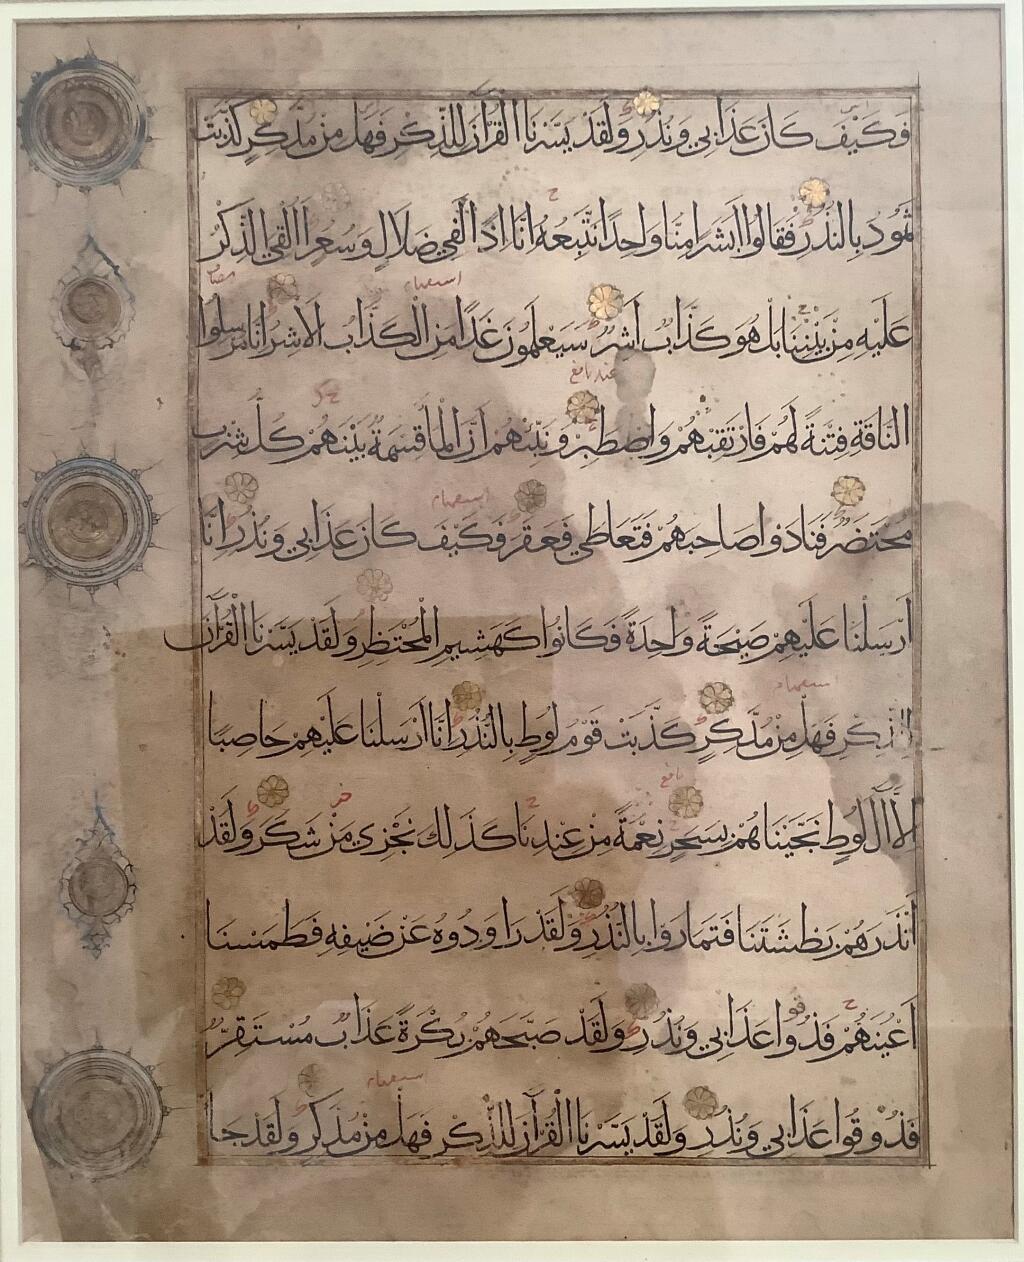 فَكَيْفَ كَانَ عَذَابِي وَنُذُرِ وَلَقَدْ يَسَّرْنَا الْقُرْآنَ لِلذِّكْرِ فَهَلْ مِنْ مُدَّكِرٍ كَذَّبَتْ
ثَمُودُ بِالنُّذُرِ فَقَالُوا أَبَشَرًا مِنَّا وَاحِدًا نَتَّبِعُهُ إِنَّا إِذًا لَفِي ضَلَالٍ وَسُعُرٍ أَأُلْقِيَ الذِّكْرُ
استفهام
عَلَيْهِ مِنْ بَيْنِنَا بَلْ هُوَ كَذَّابٌ أَشِرٌ سَيَعْلَمُونَ غَدًا مَنِ الْكَذَّابُ الْأَشِرُ إِنَّا مُرْسِلُوا
عند نافع
النَّاقَةِ فِتْنَةً لَهُمْ فَارْتَقِبْهُمْ وَاصْطَبِرْ وَنَبِّئْهُمْ أَنَّ الْمَا قِسْمَةٌ بَيْنَهُمْ كُلُّ شِرْبٍ
استفهام
مُحْتَضَرٌ فَنَادَوْا صَاحِبَهُمْ فَتَعَاطَى فَعَقَرَ فَكَيْفَ كَانَ عَذَابِي وَنُذُرِ إِنَّا
أَرْسَلْنَا عَلَيْهِمْ صَيْحَةً وَاحِدَةً فَكَانُوا كَهَشِيمِ الْمُحْتَظِرِ وَلَقَدْ يَسَّرْنَا الْقُرْآنَ
استفهام
لِلذِّكْرِ فَهَلْ مِنْ مُدَّكِرٍ كَذَّبَتْ قَوْمُ لُوطٍ بِالنُّذُرِ إِنَّا أَرْسَلْنَا عَلَيْهِمْ حَاصِبًا
نافع
إِلَّا آلَ لُوطٍ نَجَّيْنَاهُمْ بِسَحَرٍ نِعْمَةً مِنْ عِنْدِنَا كَذَلِكَ نَجْزِي مَنْ شَكَرَ وَلَقَدْ
أَنْذَرَهُمْ بَطْشَتَنَا فَتَمَارَوْا بِالنُّذُرِ وَلَقَدْ رَاوَدُوهُ عَنْ ضَيْفِهِ فَطَمَسْنَا
أَعْيُنَهُمْ فَذُوقُوا عَذَابِي وَنُذُرِ وَلَقَدْ صَبَّحَهُمْ بُكْرَةً عَذَابٌ مُسْتَقِرٌّ
استفهام
فَذُوقُوا عَذَابِي وَنُذُرِ وَلَقَدْ يَسَّرْنَا الْقُرْآنَ لِلذِّكْرِ فَهَلْ مِنْ مُدَّكِرٍ وَلَقَدْ جَا